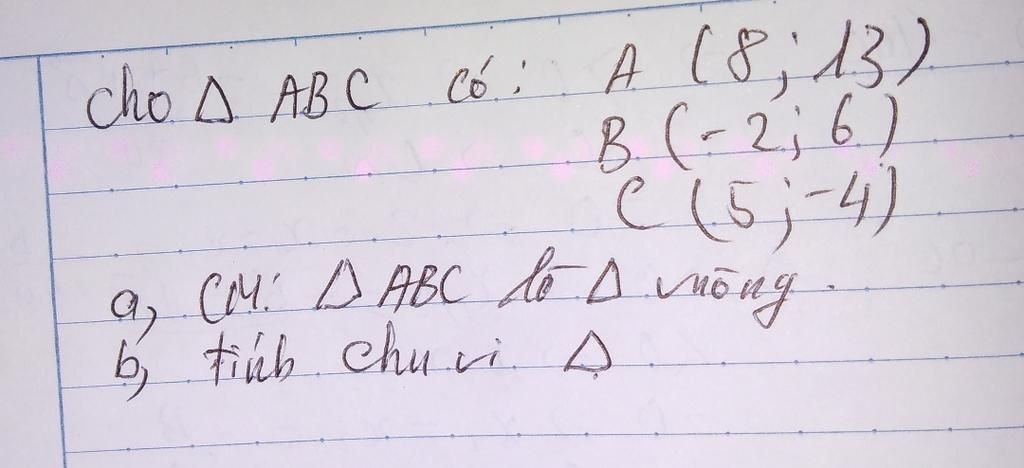 Cho Δ ABC có: A (8; 13)
B (-2; 6)
C (5; -4)
a, CM: Δ ABC là Δ vuông.
b, tính chu vi Δ